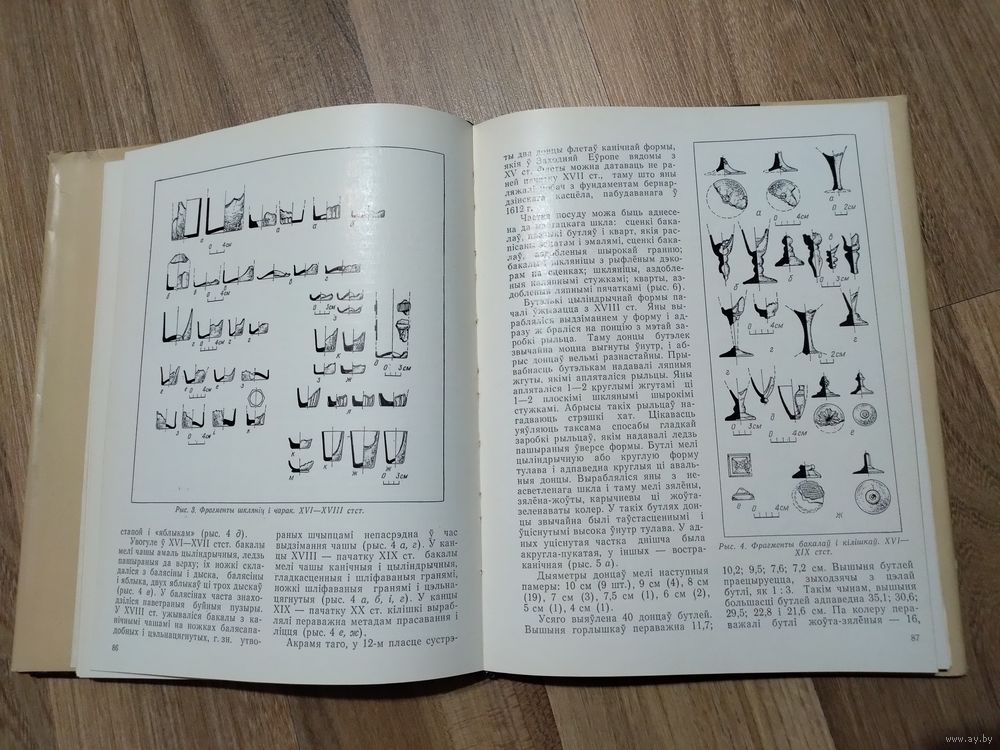 Рыс. 3. Фрагменты шкляніц і чарак. XVI—XVIII стст.
стапой і «яблыкам» (рыс. 4 д).
Увогуле ў XVI—XVII стст. бакалы
мелі чашы амаль цыліндрычныя, ледзь
пашыраныя да верху; іх ножкі скла-
даліся з балясіны і дыска, балясіны
і яблыка, двух яблыкаў ці трох дыскаў
(рыс. 4 в). У балясінах часта знахо-
дзіліся паветраныя буйныя пузыры.
У XVIII ст. ужываліся бакалы з ка-
нічнымі чашамі на ножках балясапа-
добных і цэльнацягнутых, г. зн. утво-
раных шчыпцамі непасрэдна ў час
выдзімання чашы (рыс. 4 а, г). У кан-
цы XVIII — пачатку XIX ст. бакалы
мелі чашы канічныя і цыліндрычныя,
гладкасценныя і шліфаваныя гранямі,
ножкі шліфаваныя гранямі і цэльна-
цягнутыя (рыс. 4 а, б, г). У канцы
XIX — пачатку XX ст. кілішкі выраб-
лялі пераважна метадам прасавання і
ліцця (рыс. 4 е, ж).
Акрамя таго, у 12-м пласце сустрэ-
86
ты два донцы флетаў канічнай формы,
якія ў Заходняй Еўропе вядомы з
XV ст. Флеты можна датаваць не ра-
ней пачатку XVII ст., таму што яны
ляжалі побач з фундаментам бернар-
дзінскага касцёла, пабудаванага ў
1612 г.
Частка посуду можа быць аднесе-
на да мастацкага шкла: сценкі бака-
лаў, пісаныя бутляў і кварт, якія рас-
пісаны золатам і эмалямі, сценкі бака-
лаў, аздобленыя шырокай гранню;
бакалы і шкляніцы з рыфлёным дэко-
рам на сценках; шкляніцы, аздобле-
ныя каляпнымі стужкамі; кварты, аз-
добленыя ляпнымі пячаткамі (рыс. 6).
Бутэлькі цыліндрычнай формы па-
чалі ўжывацца з XVIII ст. Яны вы-
рабляліся выдзіманнем у форму і ад-
разу ж браліся на понцію з мэтай за-
робкі рыльца. Таму донцы бутэлек
звычайна моцна выгнуты ўнутр, і аб-
рыс донцаў вельмі разнастайны. Пры-
вабнасць бутэлькам надавалі ляпныя
жгуты, якімі апляталіся рыльцы. Яны
апляталіся 1—2 круглымі жгутамі ці
1—2 плоскімі шклянымі шырокімі
стужкамі. Абрысы такіх рыльцаў на-
гадваюць стрэшкі хат. Цікавасць
уяўляюць таксама спосабы гладкай
заробкі рыльцаў, якім надавалі ледзь
пашыраныя ўверсе формы. Бутлі мелі
цыліндрычную або круглую форму
тулава і адпаведна круглыя ці аваль-
ныя донцы. Вырабляліся яны з не-
асветленага шкла і таму мелі зялёны,
зялёна-жоўты, карычневы ці жоўта-
зеленаваты колер. У такіх бутлях дон-
цы звычайна былі таўстасценнымі і
ўціснутымі высока ўнутр тулава. У ад-
ных уціснутая частка днішча была
акругла-пукатая, у іншых — востра-
канічная (рыс. 5 а).
Дыяметры донцаў мелі наступныя
памеры: 10 см (9 шт.), 9 см (4), 8 см
(19), 7 см (3), 7,5 см (1), 6 см (2),
5 см (1), 4 см (1).
Усяго выяўлена 40 донцаў бутлей.
Вышыня горлышкаў пераважна 11,7;
Рыс. 4. Фрагменты бакалаў і кілішкаў. XVI—
XIX стст.
10,2; 9,5; 7,6; 7,2 см. Вышыня бутлей
праецыруецца, зыходзячы з цэлай
бутлі, як 1 : 3. Такім чынам, вышыня
большасці бутлей адпаведна 35,1; 30,6;
29,5; 22,8 і 21,6 см. Па колеру пера-
важалі бутлі жоўта-зялёныя — 16,
87
www.ay.by